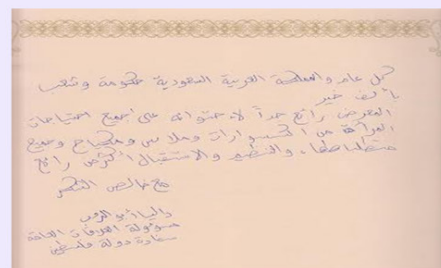 كل عام والمملكة العربية السعودية حكومة وشعب
بألف خير
المعرض رائع جداً لاحتوائه على جميع احتياجات
المرأة من اكسسوارات وملابس ومكياج وجميع
متطلباتها، والتنظيم والاستقبال أكثر من رائع
مع خالص الشكر
داليا أبو الرب
مسؤولة العلاقات العامة
سفارة دولة فلسطين